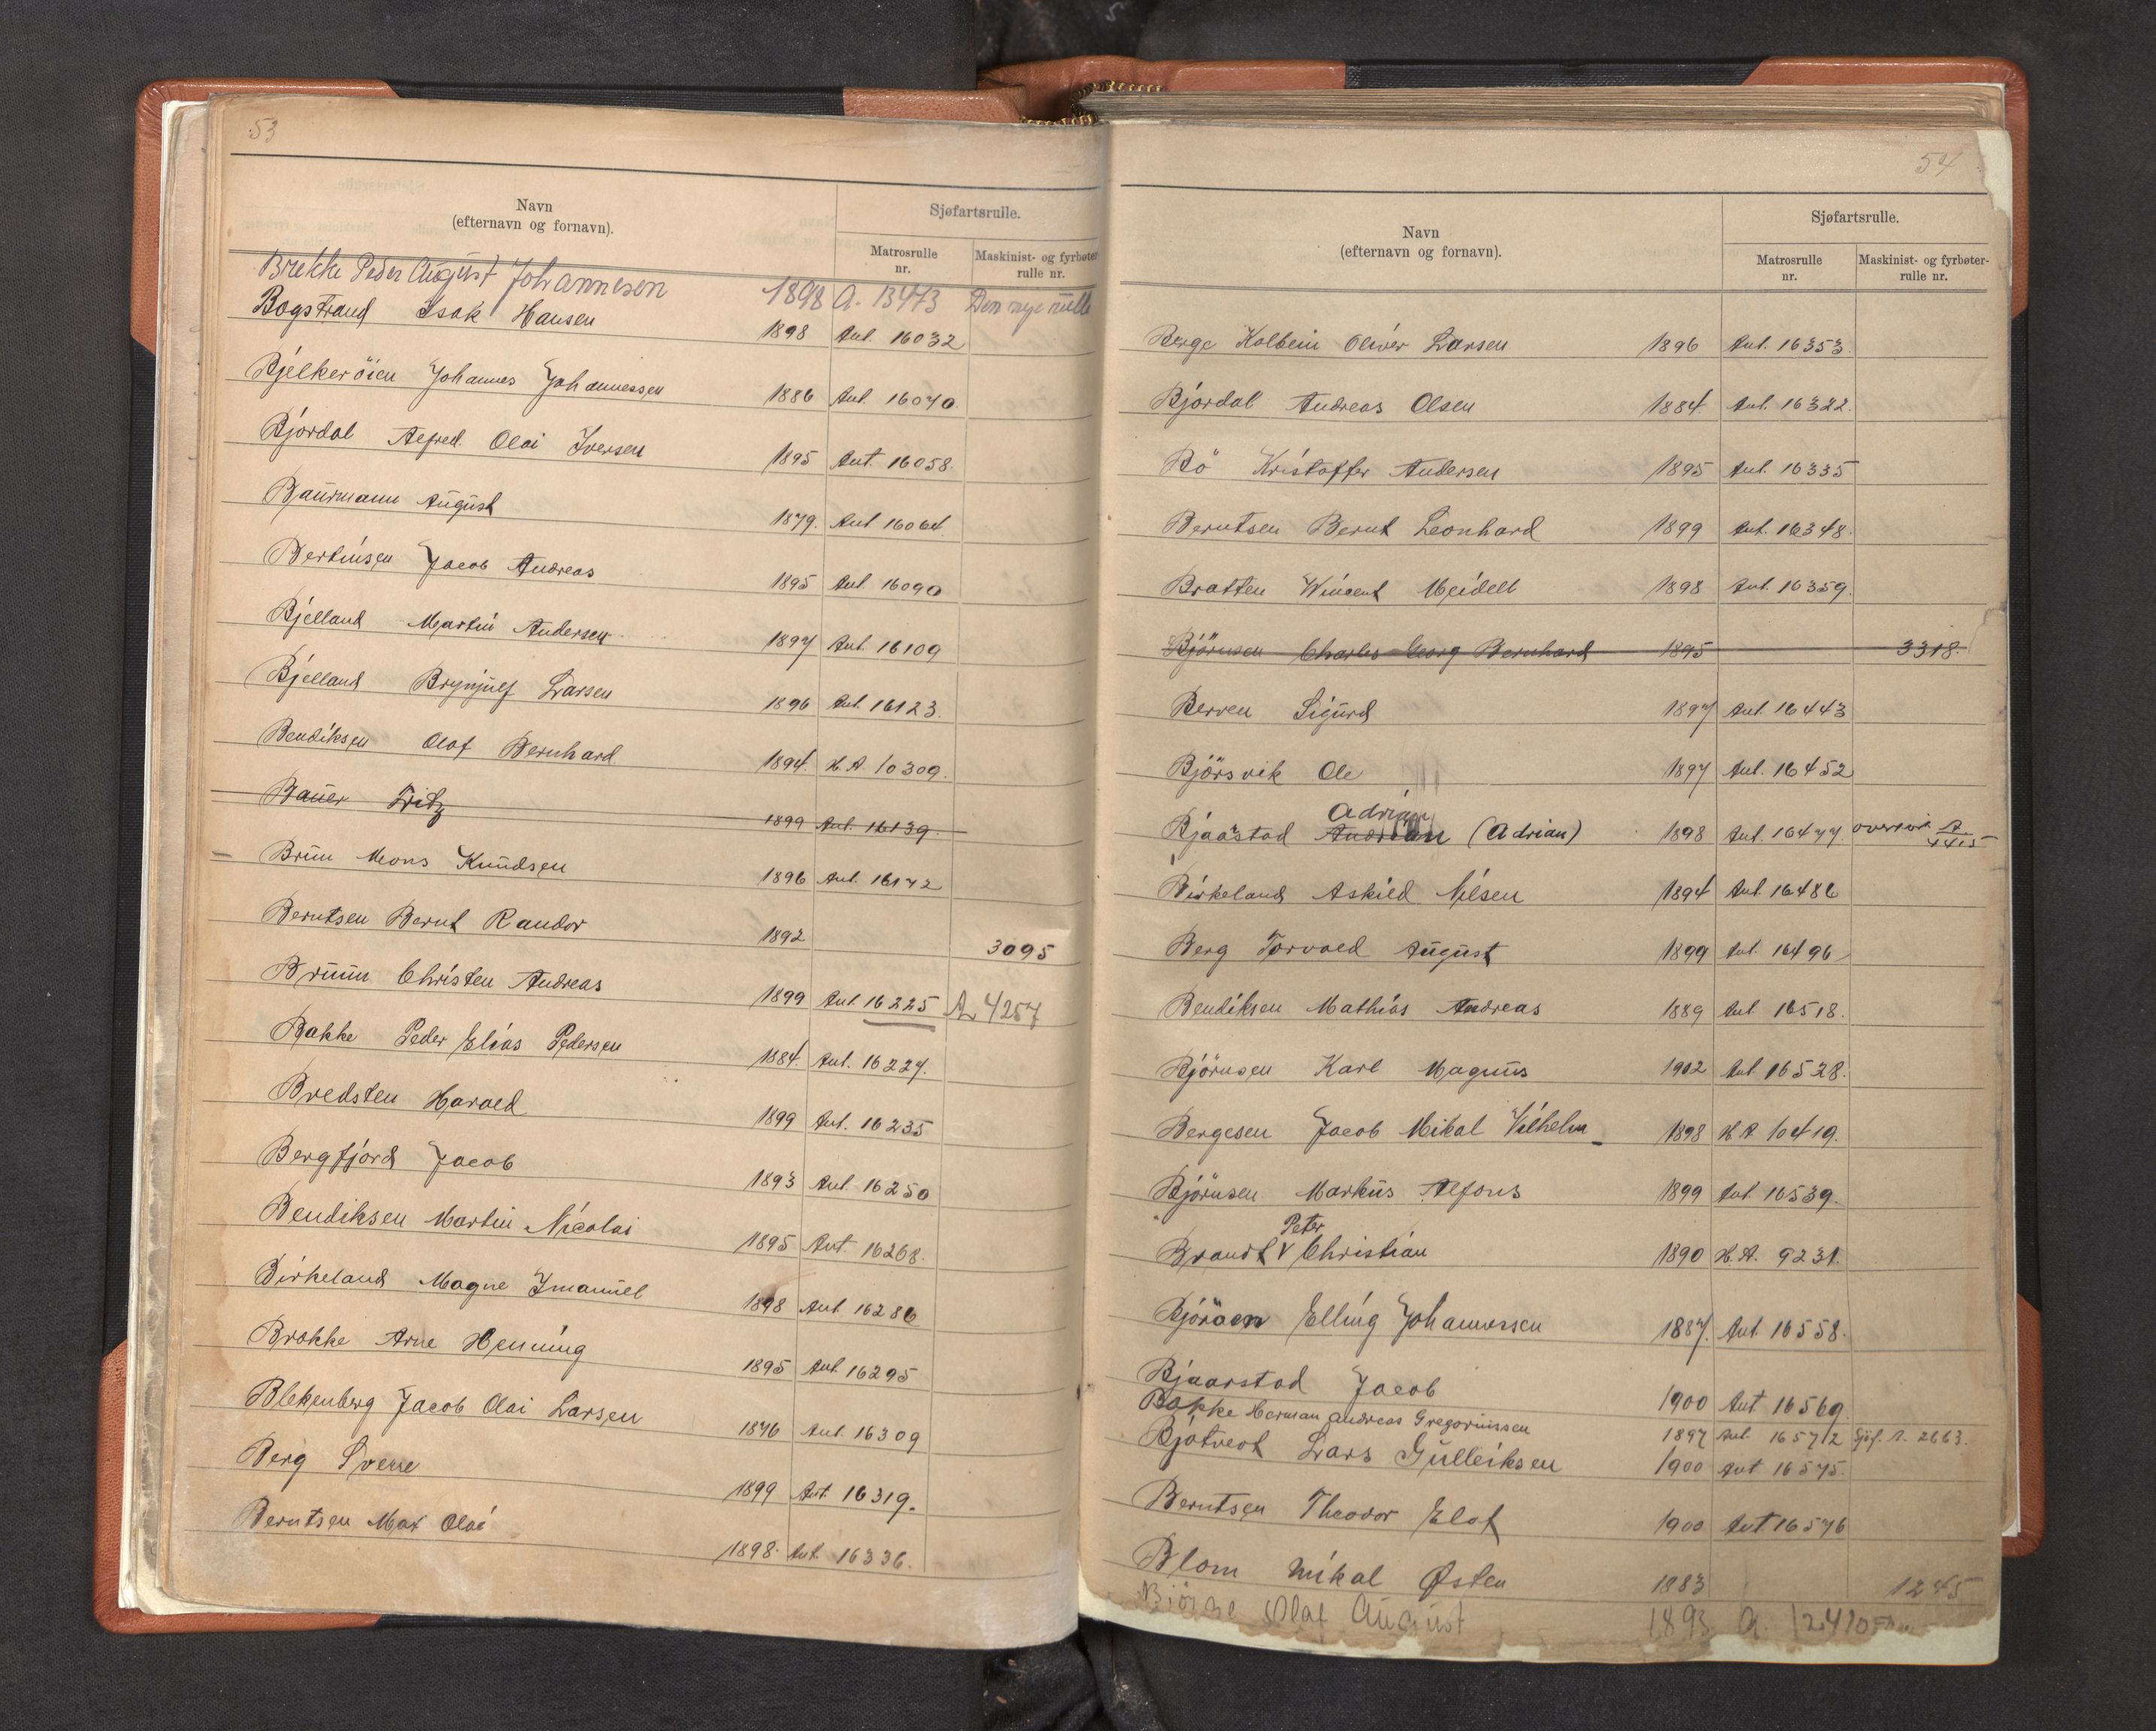 53
Navn
(efternavn og fornavn).
Sjøfartsrulle.
Matrosrulle
nr.
Maskinist- og fyrbøter-
rulle nr.
Brekke Peder August Johannesen 1898 A. 13473 Den nye rulle
Bogstrand Isak Hansen 1898 Ant. 16032
Bjelkeröien Johannes Johannessen 1886 Ant. 16040.
Bjordal Alfred Olai Iversen 1895 Ant. 16058.
Baurmann August 1879. Ant. 16064.
Bertinsen Jacob Andreas 1895 Ant. 16090
Bjelland Martin Andersen 1897 Ant. 16109
Bjelland Brynjulf Larsen 1896 Ant. 16123.
Bendiksen Olaf Bernhard 1894. H.A. 10309.
Bauer Fritz 1899 Ant. 16139.
Brun Mons Knudsen 1896 Ant. 16172
Berntsen Bernt Randor 1892 3095
Bruun Christen Andreas 1899 Ant. 16225 A 4257
Bakke Peder Elias Pedersen 1884. Ant. 16227.
Bredsten Harald 1899 Ant. 16235
Bergfjord Jacob 1893 Ant. 16250
Bendiksen Martin Nicolai 1895 Ant. 16268.
Birkeland Magne Imanuel 1898 Ant. 16286
Brakke Arne Henning 1895 Ant. 16295
Blekenberg Jacob Olai Larsen 1876 Ant. 16309
Berg Sverre 1899 Ant. 16319.
Berntsen Max Olai 1898. Ant. 16336.
54
Navn
(efternavn og fornavn).
Sjøfartsrulle.
Matrosrulle
nr.
Maskinist- og fyrbøter-
rulle nr.
Berge Kolbein Oliver Larsen 1896 Ant. 16353.
Bjordal Andreas Olsen 1884. Ant. 16322.
Bö Kristoffer Andersen 1895 Ant. 16335
Berntsen Bernt Leonhard 1899 Ant. 16348.
Bratten Wincent Meidell 1898 Ant. 16359.
Björnsen Charles Georg Bernhard 1895 3318.
Berven Sigurd 1897 Ant. 16443
Björsvik Ole 1897 Ant. 16452
Adrian
Bjaastad (Adrian) 1898 Ant. 16477. A
Birkeland Askild Nilsen 1894 Ant. 16486
Berg Torvald August 1899 Ant. 16496
Bendiksen Mathias Andreas 1889 Ant. 16518.
Björnsen Karl Magnus 1902 Ant. 16528.
Bergesen Jacob Mikal Vilhelm 1898 H A 10419.
Björnsen Markus Alfons 1899 Ant. 16539.
Peter
Brandt V Christian 1890 H.A. 9231.
Björåen Elling Johannessen 1887. Ant. 16558.
Bjaarstad Jacob 1900 Ant 16569
Bakke Herman Andreas Gregoriussen 1897 Ant. 16572 Sjöf. r. 2663.
Bjotveot Lars Gulleiksen 1900 Ant 16575.
Berntsen Theodor Elof 1900 Ant 16576
Blom Mikal Østen 1883 1245
Olaf August 1893 A. 12410